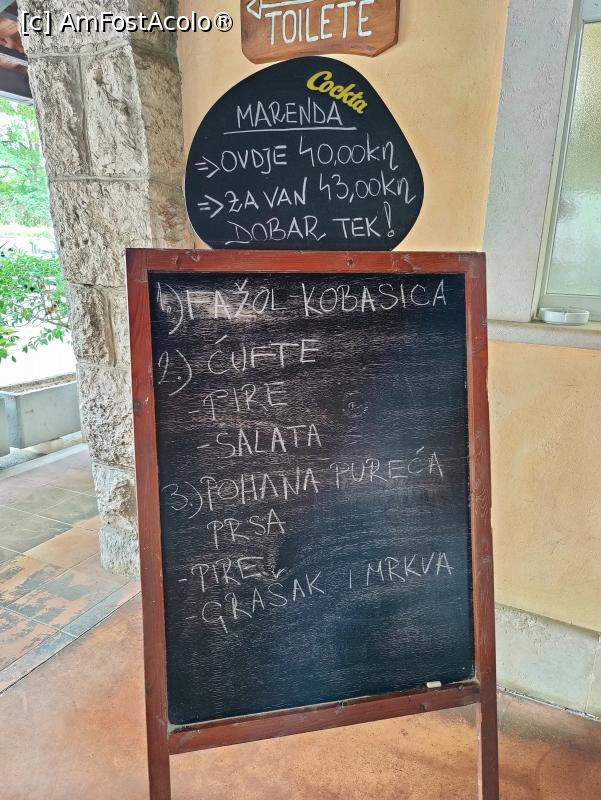 [c] AmFostAcolo®
TOILETE
Cockta
MARENDA
=> OVDJE 40,00kn
=> ZA VAN 43,00kn
DOBAR TEK!
1.) FAŽOL-KOBASICA
2.) ĆUFTE
-PIRE
-SALATA
3.) POHANA PUREĆA
PRSA
-PIRE
-GRAŠAK I MRKVA